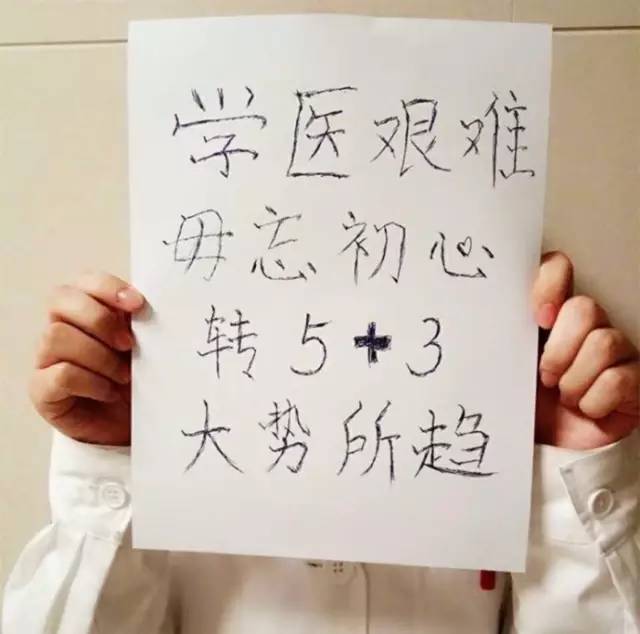 学医艰难
毋忘初心
转5+3
大势所趋